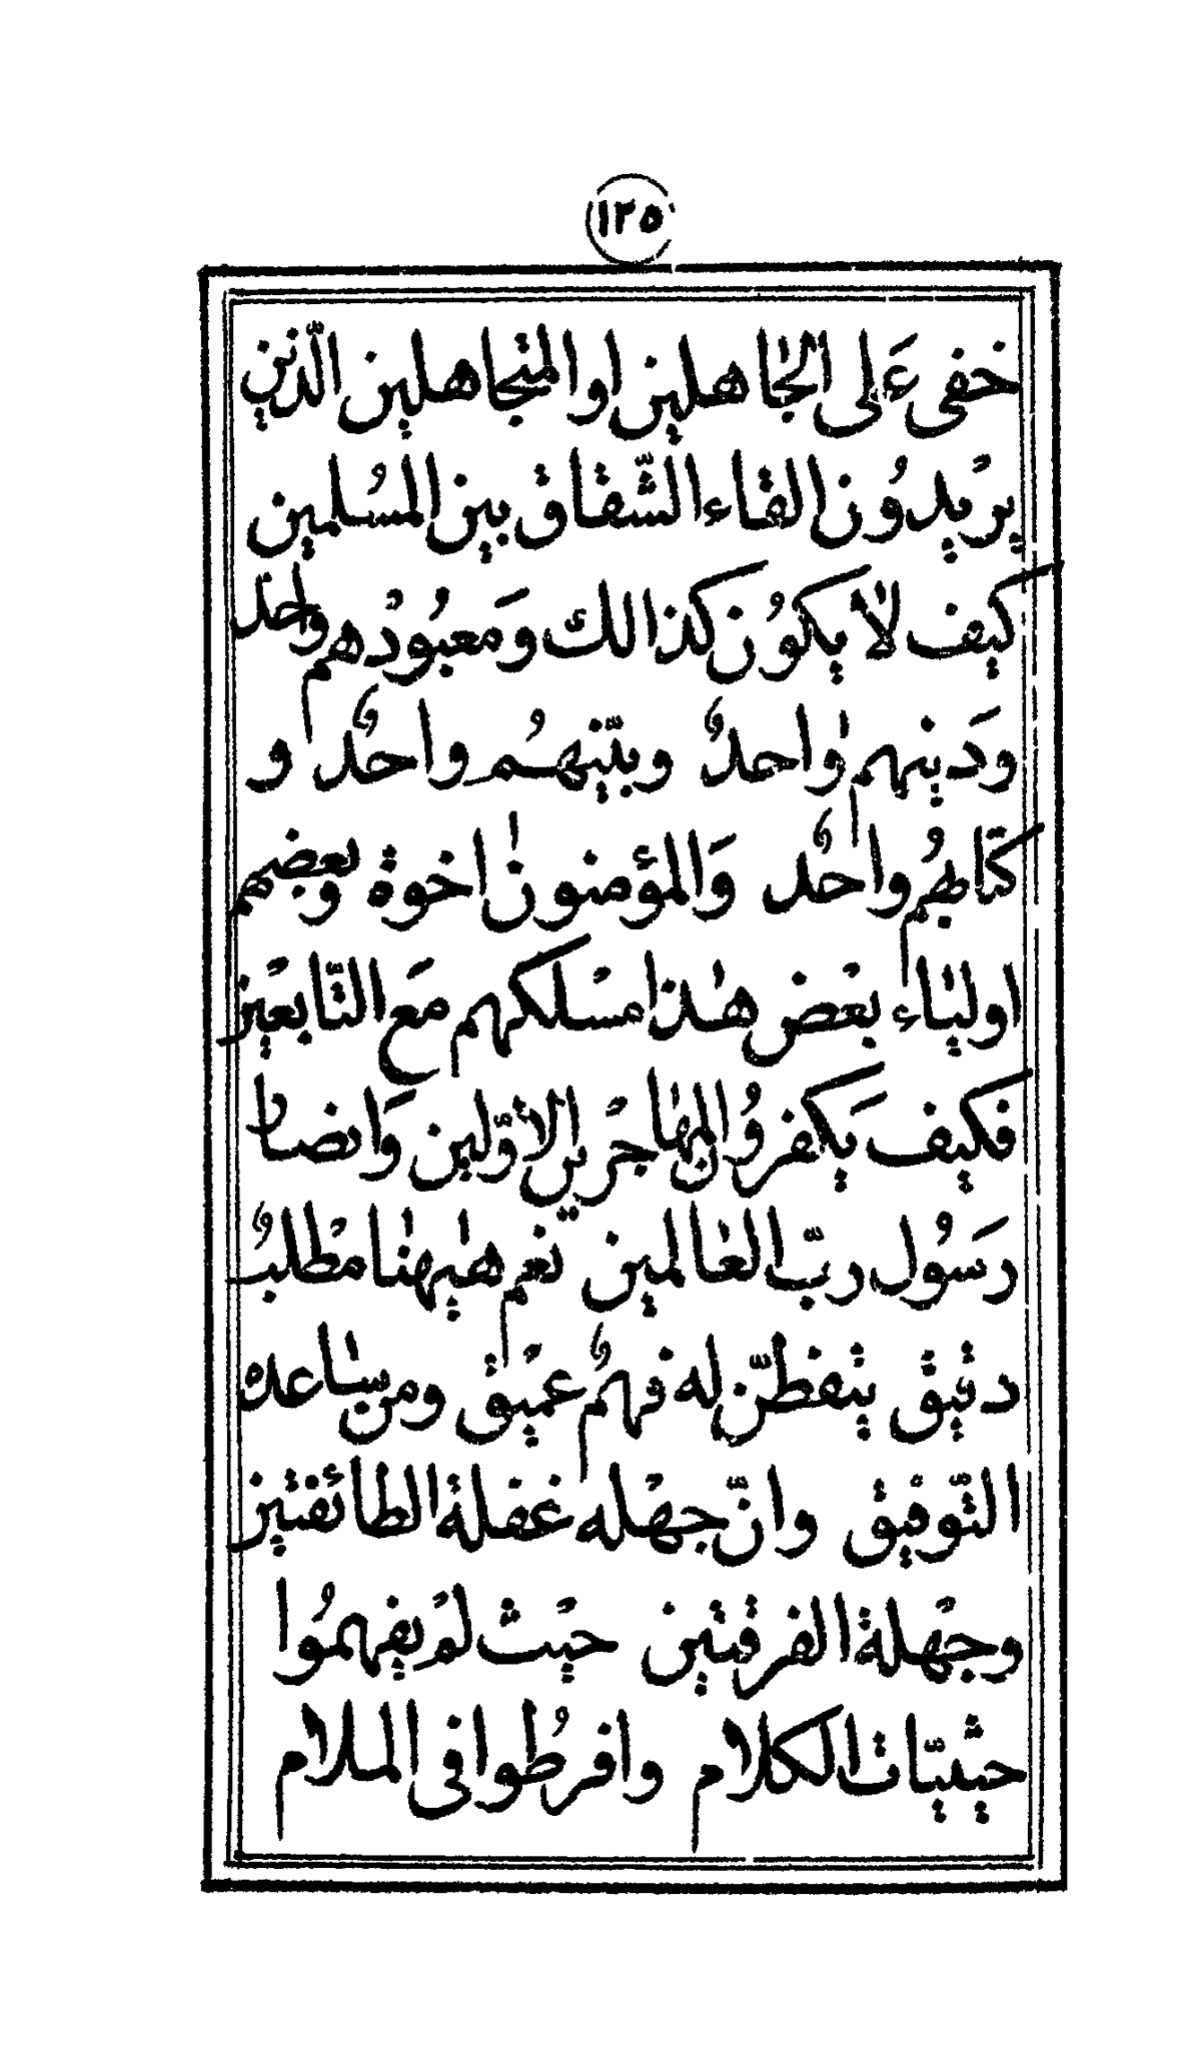 ١٢٥
خفى عَلى الجاهلين او المتجاهلين الّذين
يريْدوُن القاء الشّقاق بين المسُلمين
كيف لا يكوُن كذالك وَمعبوُدْهم واحد
وَدينهم واحدٌ وبيّنهُم واحدٌ و
كتابهُم واحدٌ وَالمؤمنون اخوة وبعضهم
اولياء بعْض هٰذا مسْلكهم مَع التّابعيْن
فكيف يَكفروُن المهاجرْين الأوّلين وَانصار
رَسوُل ربّ العٰالمين نعْم هٰيهنٰا مطْلبٌ
دقيق يتفطّن له فهمٌ عميْق ومن ساعده
التّوفيْق وانّ جهْله غفلة الطائفتين
وجهْلة الفرقتين حيْث لمْ يفهموُا
حيثيّات الكلام وافرطُوا فى الملام